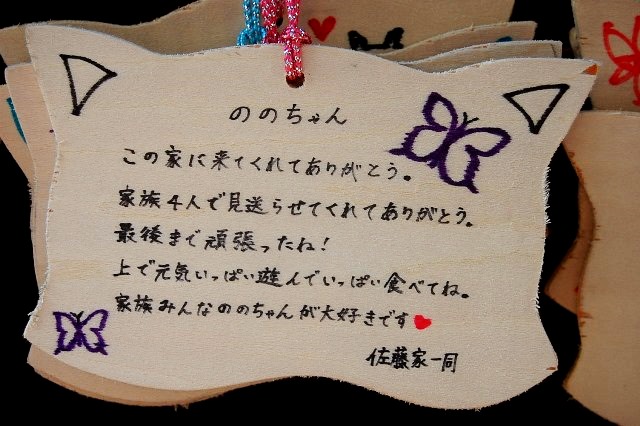 ののちゃん
この家に来てくれてありがとう。
家族4人で見送らせてくれてありがとう。
最後まで頑張ったね!
上で元気いっぱい遊んでいっぱい食べてね。
家族みんなののちゃんが大好きです
佐藤家一同